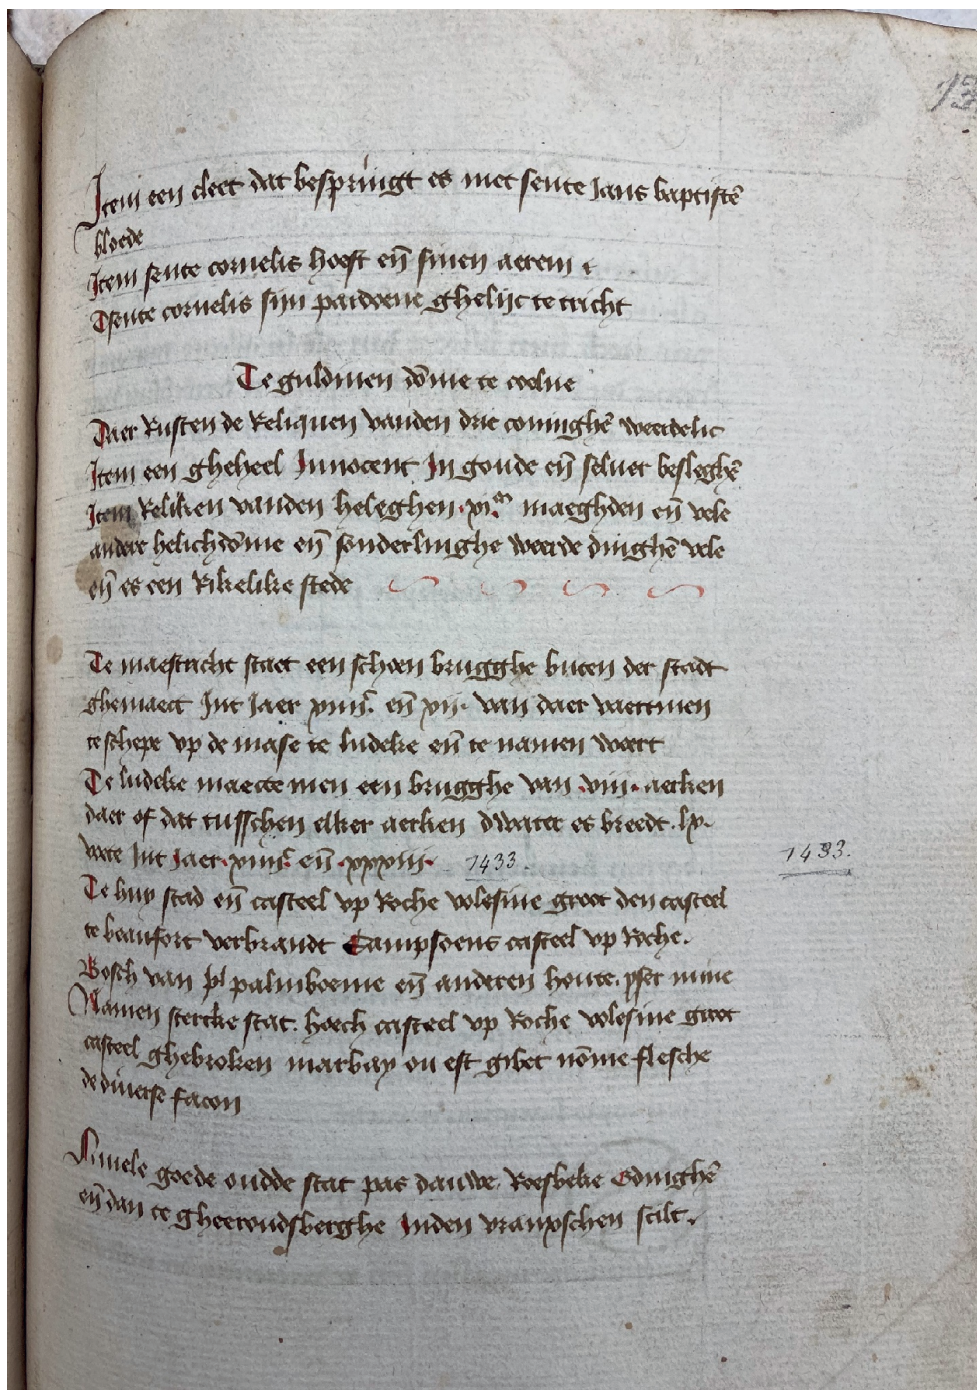 Item een cleet dat bespringt es met sente Jans baptistē
bloede
Item sente cornelis hooft eñ sinen aerem
Tsente cornelis sijn pardoene ghelijc te tricht
Te guldinen dōme te coelne
Daer Rusten de Reliquen vanden drie coninghē weerdelic
Item een gheheel Innocent In goude eñ seluer besleghē
Item Reliken vanden heleghen .xi.m maeghden eñ vele
andere helichdōme eñ sonderlinghe weerde dinghē vele
eñ es een Rikelike stede
Te maestricht staet een schoen brugghe buten der stadt
ghemaect Int Jaer xiiijc. eñ xij. van daer vaertmen
te schepe vp de mase te ludeke eñ te namen waert
Te ludeke maecte men een brugghe van .viij. aerken
daer of dat tusschen elker aerken dwater es breedt .lx.
voete Int Jaer .xiiijc. eñ .xxxiij. 1433.
1433.
Te huy stad eñ casteel vp Roche volesine groot den casteel
te beaufort verbrandt Sampsoens casteel vp Roche.
Bosch van pl palmboeme eñ anderen houte. yser mine
Namen stercke stat. hoech casteel vp Roche volesine groot
casteel ghebroken marbay ou est gibet nōme flesche
de diuerse facon
Niuele goede oudde stat pas dauwe. Roesbeke Edinghē
eñ dan te gheeroudsberghe Inden vranxschen scilt.